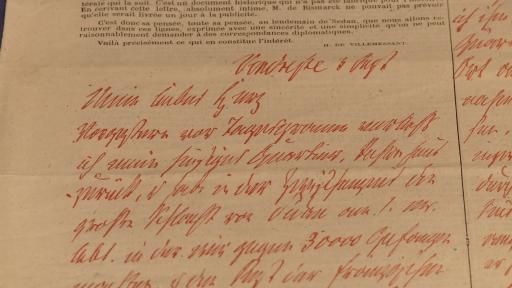 térale qui la suit. C'est un document historique qui n'a pas été
En écrivant cette lettre, absolument intime, M. de Bismarck ne pouvait pas prévoir
qu'elle serait livrée un jour à la publicité.
C'est donc sa pensée, toute sa pensée, au lendemain de Sedan, que nous allons re-
trouver dans ces lignes, exprimée avec une sincérité et une simplicité qu'on ne peut
raisonnablement demander à des correspondances diplomatiques.
Voilà précisément ce qui en constitue l'intérêt.
H. DE VILLEMESSANT.
Vendresse 3 Sept
Mein liebes Herz
Vorgestern vor Tagesgrauen verließ
ich mein hiesiges Quartier, kehre heut
zurück, u. habe in der Zwischenzeit die
große Schlacht von Sedan am 1. er-
lebt, in der wir gegen 30000 Gefangne
machten, u. den Rest der französischen